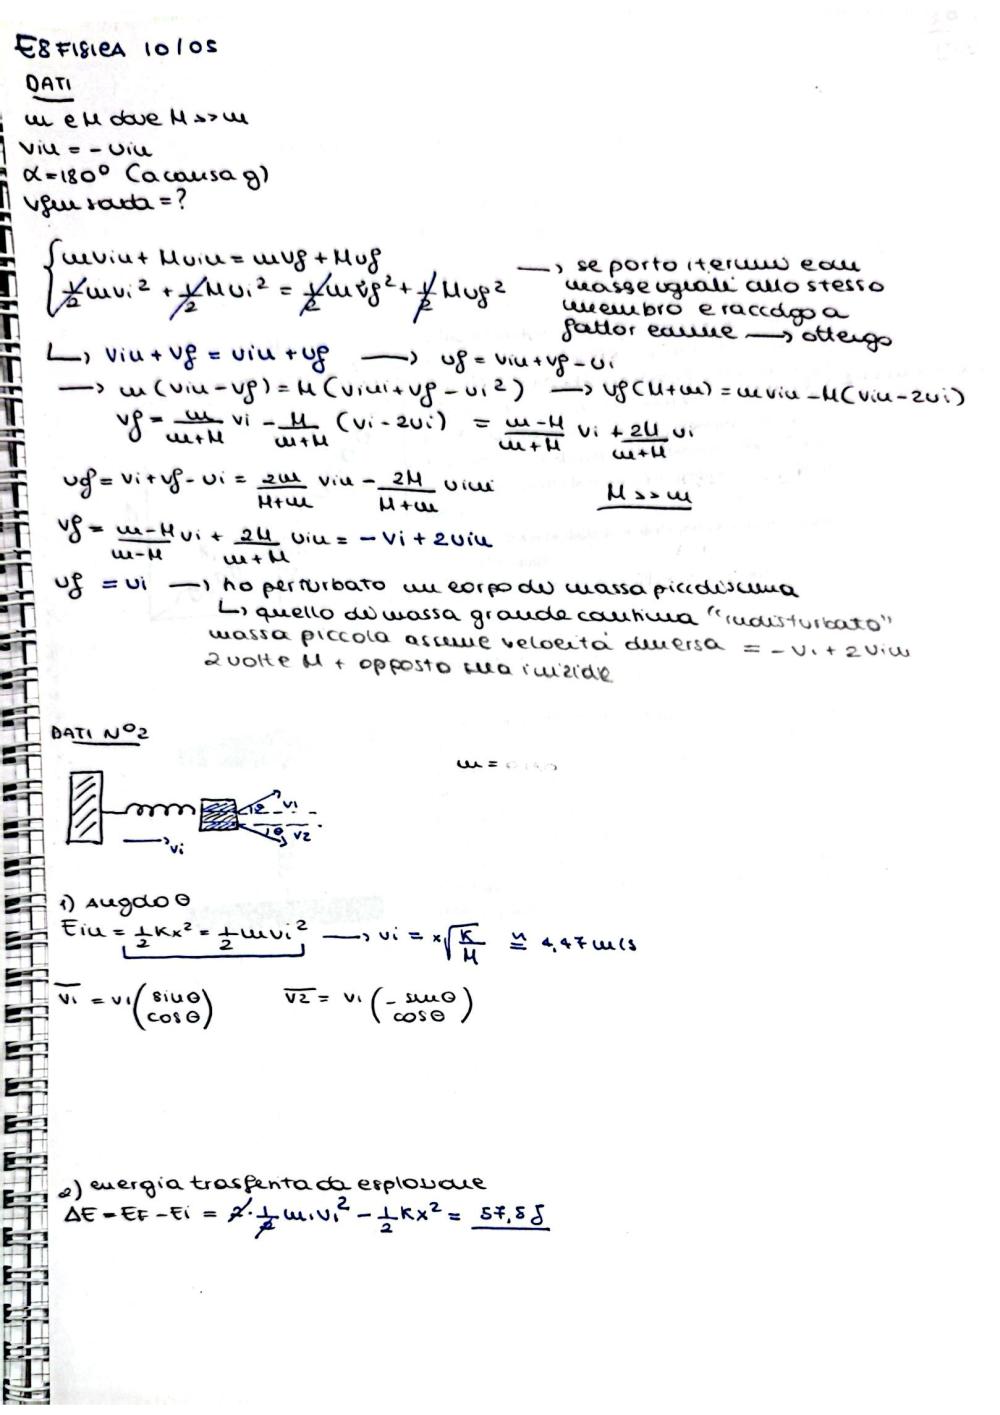 ES FISICA 10/05
DATI
m e M dove M >> m
vin = - uin
α = 180° (a causa g)
vfin sarà = ?
{ mvin + Muin = mvf + Muf
½mvi² + ½Mui² = ½mvf² + ½Muf²
→ se porto i termini con
masse uguali allo stesso
membro e raccolgo a
fattor comune → ottengo
↳ vin + vf = uin + uf → uf = vin + vf - ui
→ m(vin - vf) = M(vini + vf - ui²) → vf(M+m) = mvin - M(vin - 2ui)
vf = m/(m+M) vi - M/(m+M) (vi - 2ui) = (m-M)/(m+M) vi + 2M/(m+M) ui
uf = vi + vf - ui = 2m/(M+m) vin - 2M/(M+m) uini
M >> m
vf = (m-M)/(m-M) vi + 2M/(m+M) uin = - vi + 2uin
uf = ui → ho perturbato un corpo di massa piccolissima
↳ quello di massa grande continua "indisturbato"
massa piccola assume velocità diversa = - vi + 2vin
2 volte M + opposto sua iniziale
DATI N°2
m =
θ v1
θ v2
vi
1) Angolo θ
Ein = ½Kx² = ½mvi² → vi = x√(K/M) ≅ 4,47 m/s
v1 = v1 (sinθ cosθ) v2 = v1 (-sinθ cosθ)
2) energia trasferita da esplosione
ΔE = EF - Ei = 2·½m1v1² - ½Kx² = 57,5 J